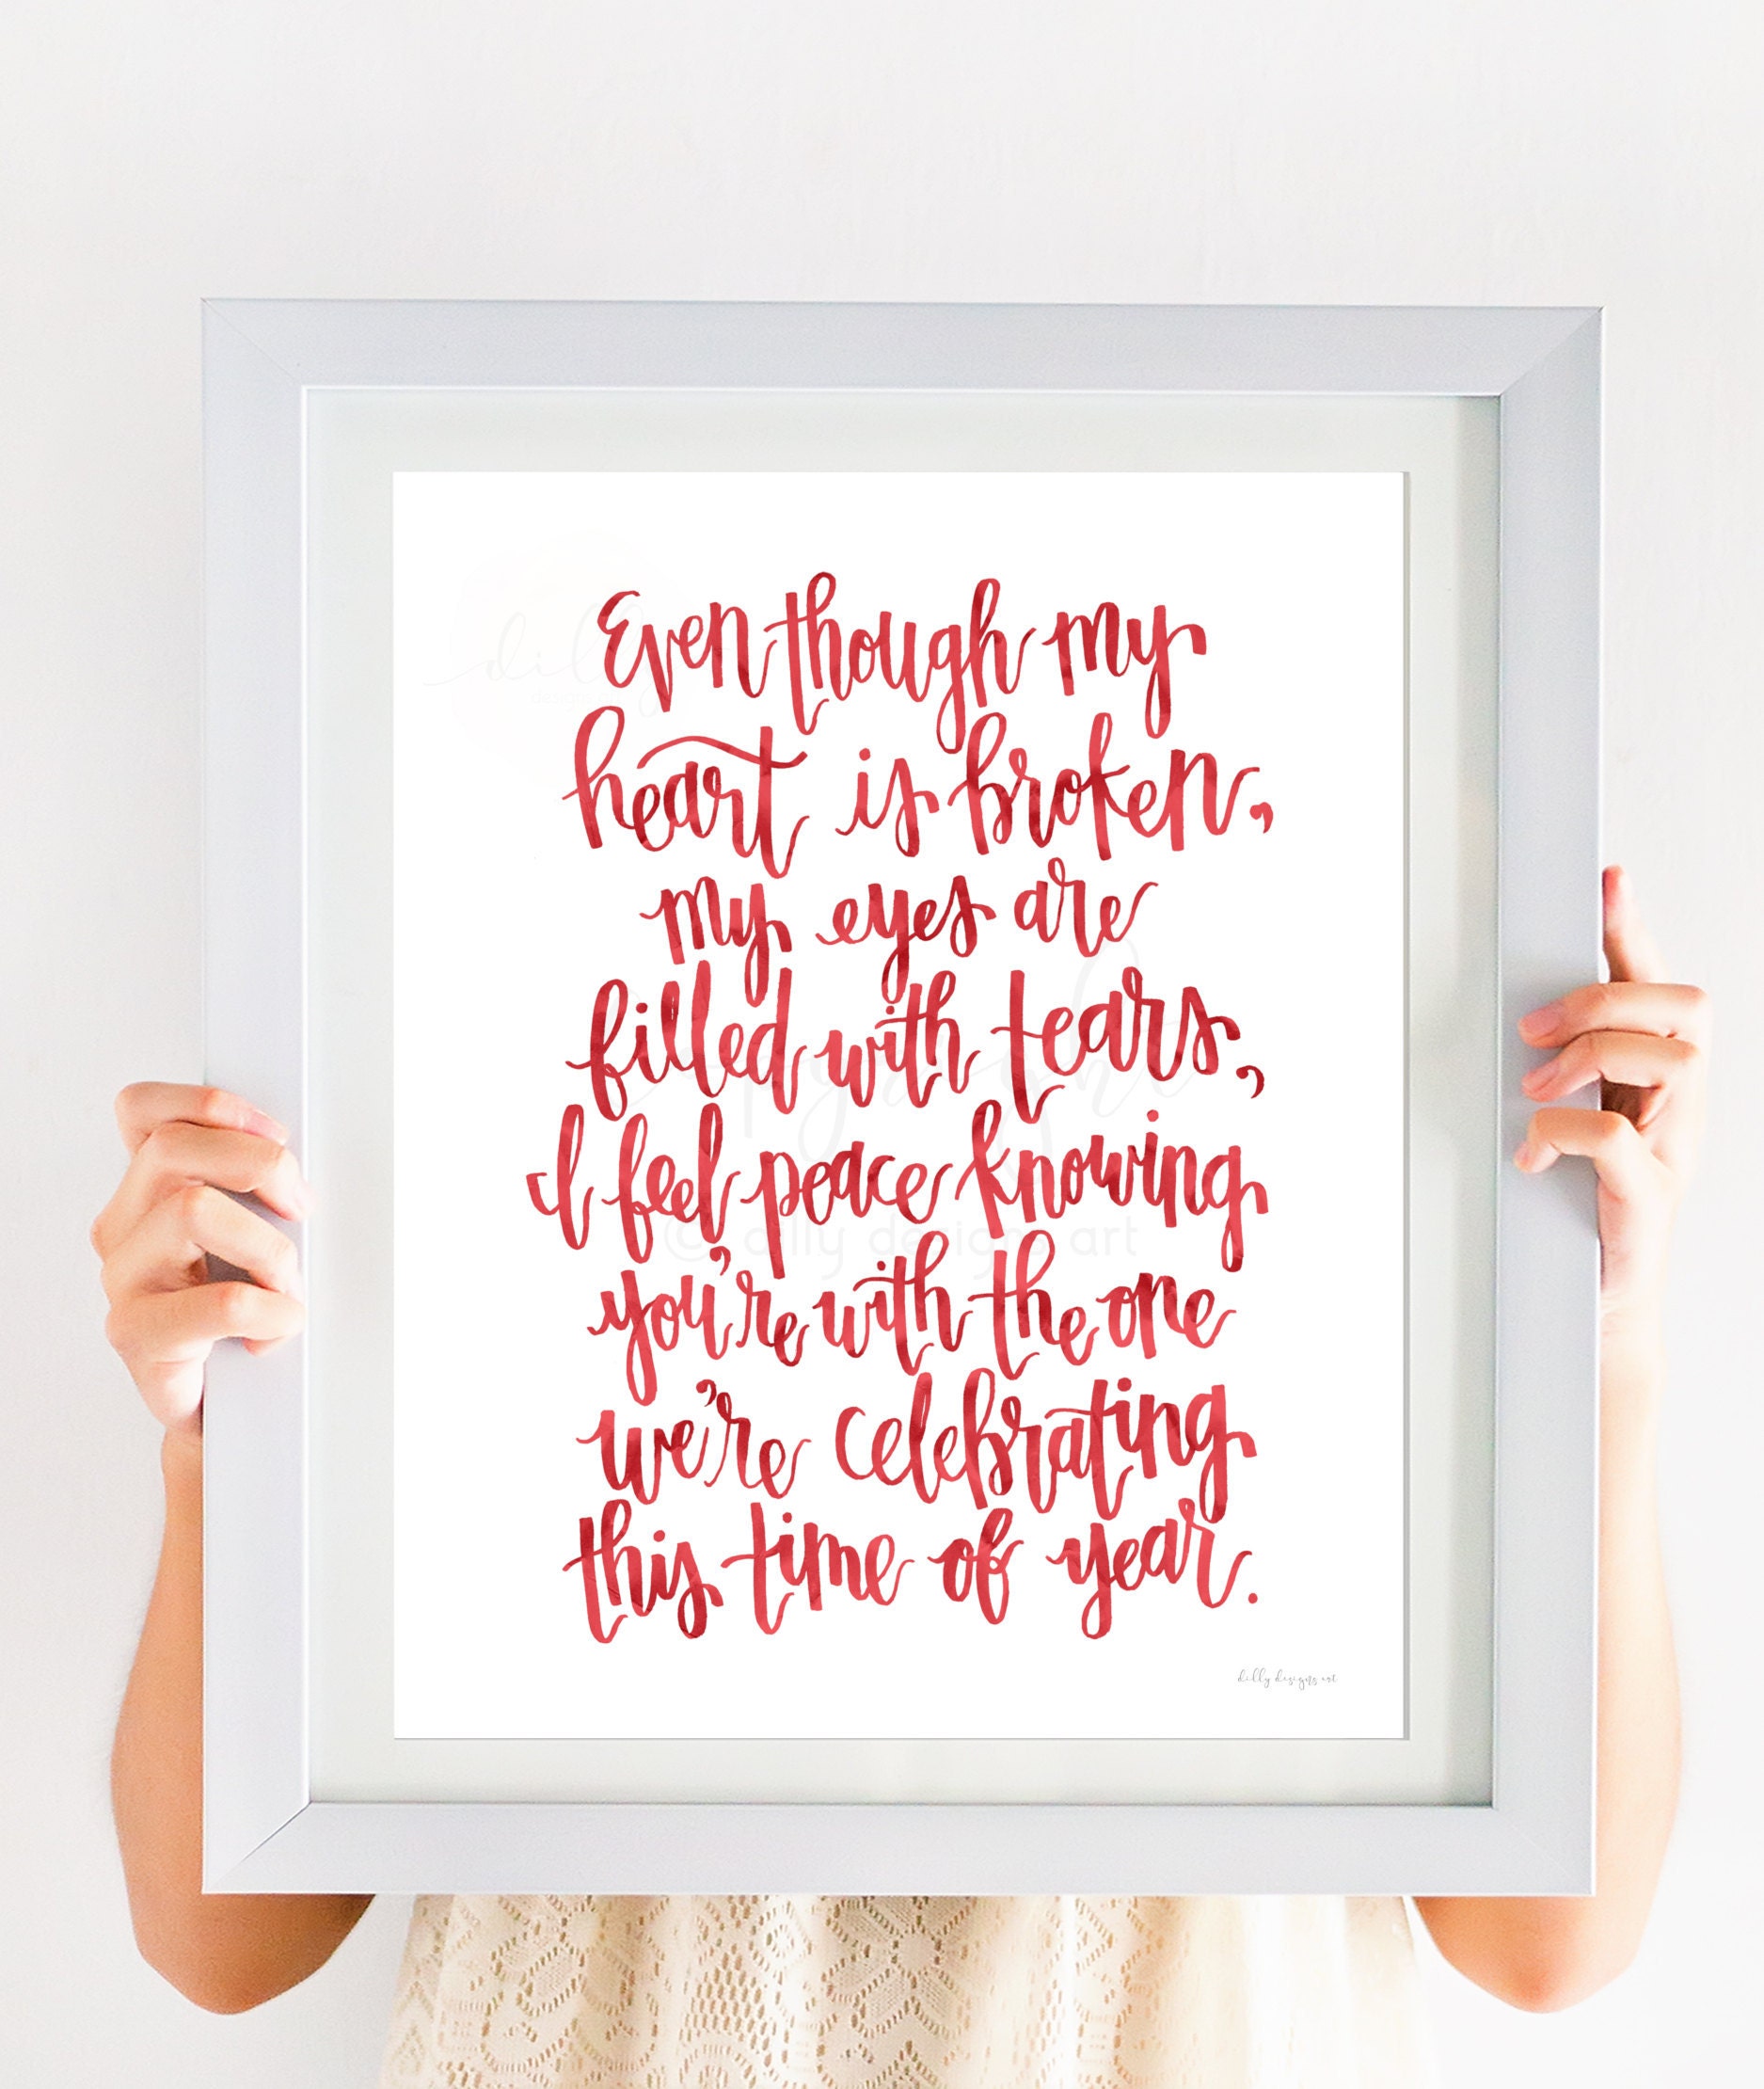 Even though my
heart is broken,
my eyes are
filled with tears,
I feel peace knowing
© dilly designs art
you're with the one
we're celebrating
this time of year.
dilly designs art